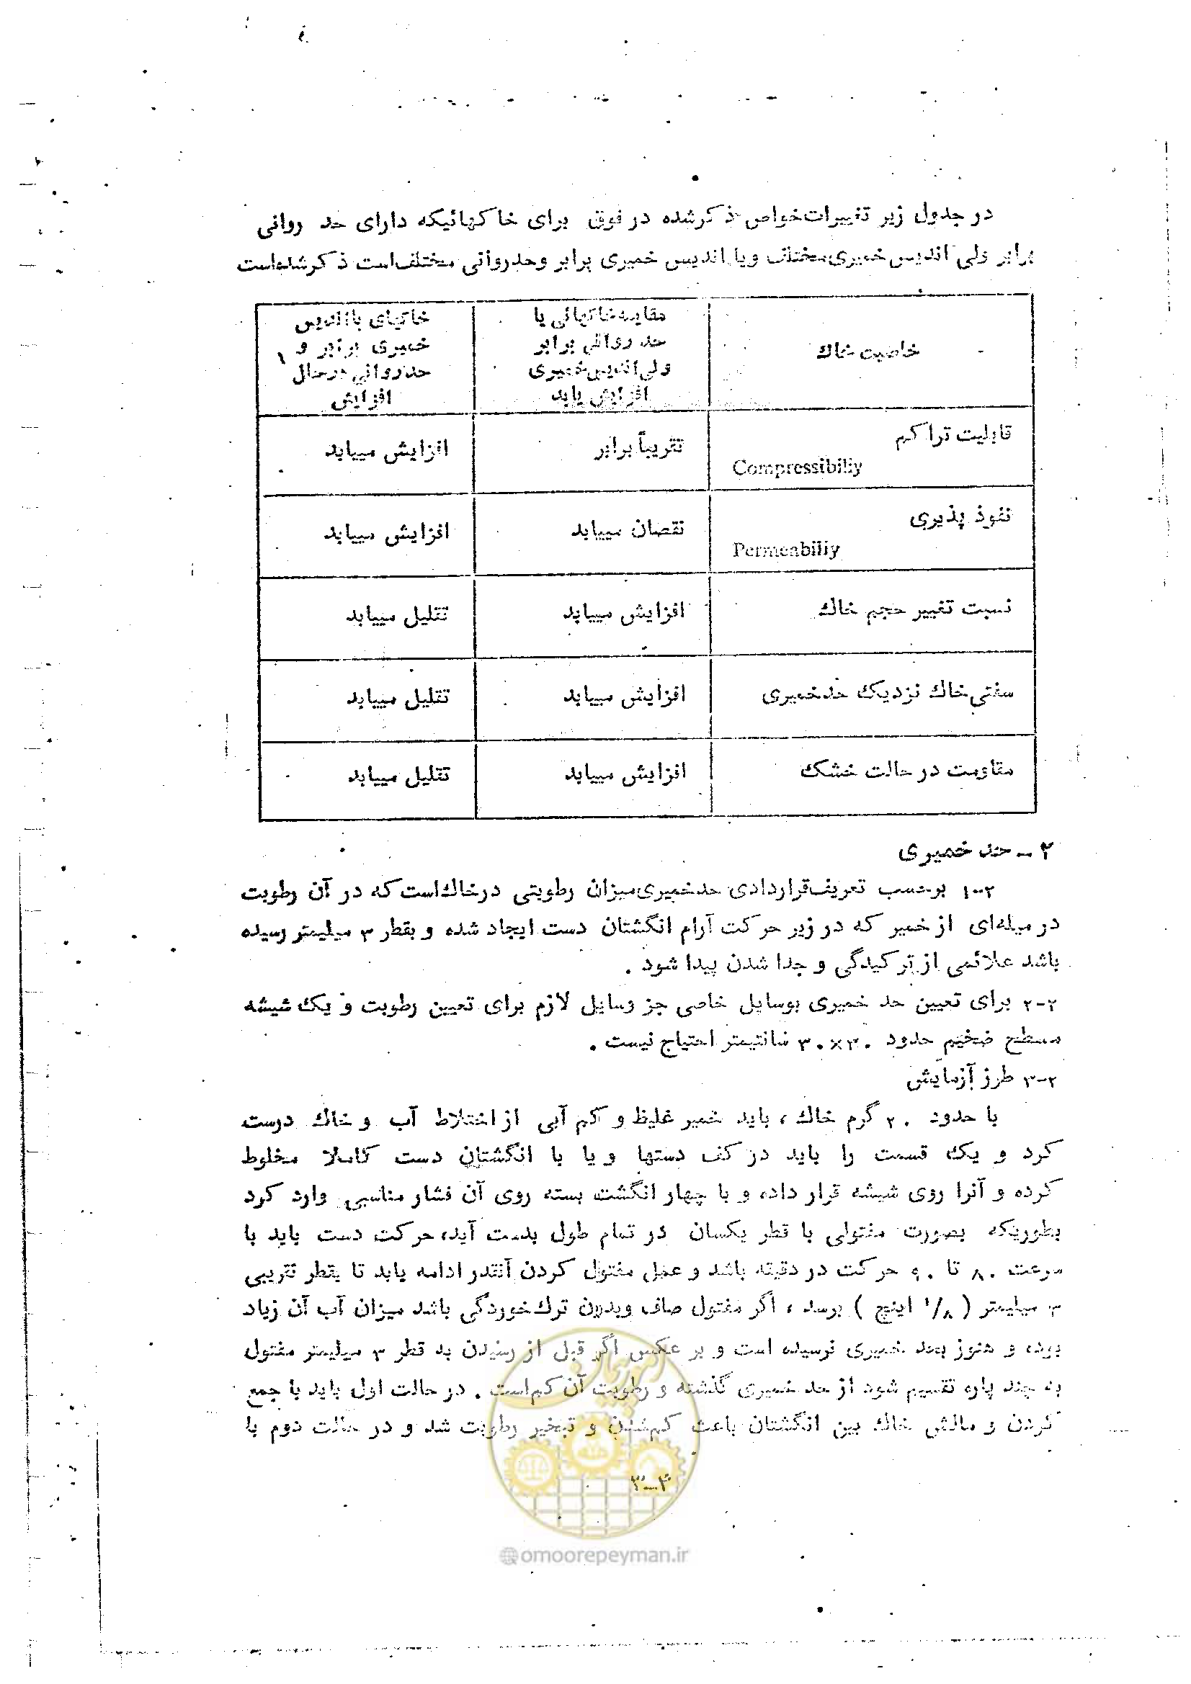 در جدول زیر تغییرات خواص ذکر شده در فوق برای خاکهائیکه دارای حد روانی
برابر ولی اندیس خمیری مختلف و یا اندیس خمیری برابر و حد روانی مختلف است ذکر شده است
خاصیت خاک
مقایسه خاکهائی با
حد روانی برابر
ولی اندیس خمیری
افزایش یابد
خاکهای با اندیس
خمیری برابر و
حد روانی در حال
افزایش
قابلیت تراکم
Compressibiliy
تقریباً برابر
افزایش مییابد
نفوذ پذیری
Permeabiliy
نقصان مییابد
افزایش مییابد
نسبت تغییر حجم خاک
افزایش مییابد
تقلیل مییابد
سفتی خاک نزدیک حد خمیری
افزایش مییابد
تقلیل مییابد
مقاومت در حالت خشک
افزایش مییابد
تقلیل مییابد
۲ - حد خمیری
۲-۱ برحسب تعریف قراردادی حد خمیری میزان رطوبتی در خاک است که در آن رطوبت
در میله‌ای از خمیر که در زیر حرکت آرام انگشتان دست ایجاد شده و بقطر ۳ میلیمتر رسیده
باشد علائمی از ترکیدگی و جدا شدن پیدا شود .
۲-۲ برای تعیین حد خمیری بوسایل خاصی جز وسایل لازم برای تعیین رطوبت و یک شیشه
مسطح ضخیم حدود ۳۰×۳۰ سانتیمتر احتیاج نیست .
۲-۳ طرز آزمایش
با حدود ۲۰ گرم خاک ، باید خمیر غلیظ و کم آبی از اختلاط آب و خاک درست
کرد و یک قسمت را باید در کف دستها و یا با انگشتان دست کاملا مخلوط
کرده و آنرا روی شیشه قرار داده و با چهار انگشت بسته روی آن فشار مناسبی وارد کرد
بطوریکه بصورت مفتولی با قطر یکسان در تمام طول بدست آید، حرکت دست باید با
سرعت ۸۰ تا ۹۰ حرکت در دقیقه باشد و عمل مفتول کردن آنقدر ادامه یابد تا بقطر تقریبی
۳ میلیمتر ( ۱/۸ اینچ ) برسد ، اگر مفتول صاف و بدون ترک خوردگی باشد میزان آب آن زیاد
بوده و هنوز بحد خمیری نرسیده است و بر عکس اگر قبل از رسیدن به قطر ۳ میلیمتر مفتول
به چند پاره تقسیم شود از حد خمیری گذشته و رطوبت آن کم است . در حالت اول باید با جمع
کردن و مالش خاک بین انگشتان باعث کم شدن و تبخیر رطوبت شد و در حالت دوم با
۳-۴
امور پیمان
@omoorepeyman.ir